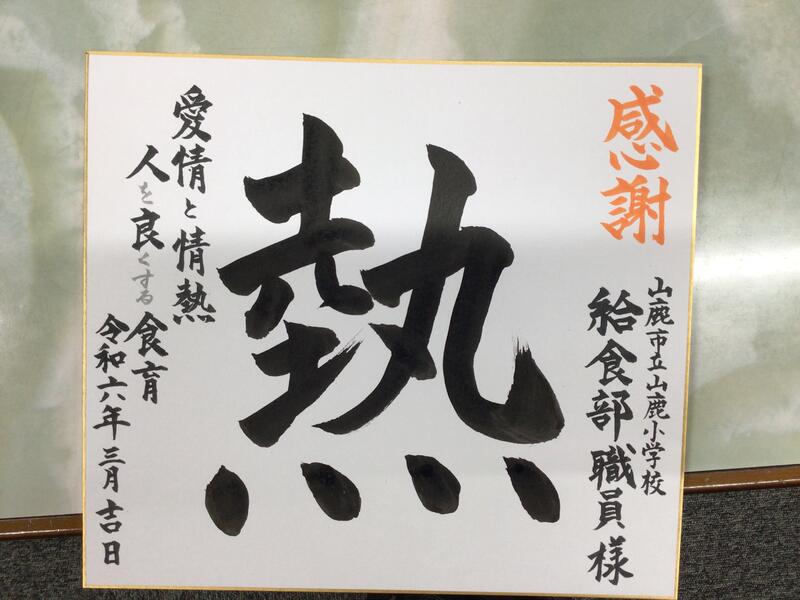 感謝
山鹿市立山鹿小学校
給食部職員様
熱
愛情と情熱
人を良くする食育
令和六年三月吉日